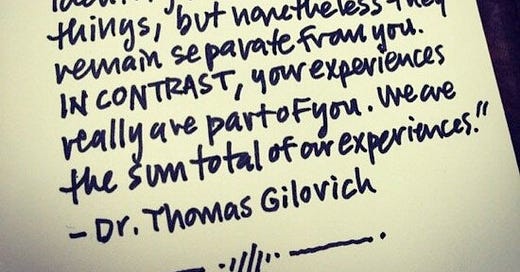 things, but nonetheless they
remain separate from you.
IN CONTRAST, your experiences
really are part of you. We are
the sum total of our experiences."
- Dr. Thomas Gilovich